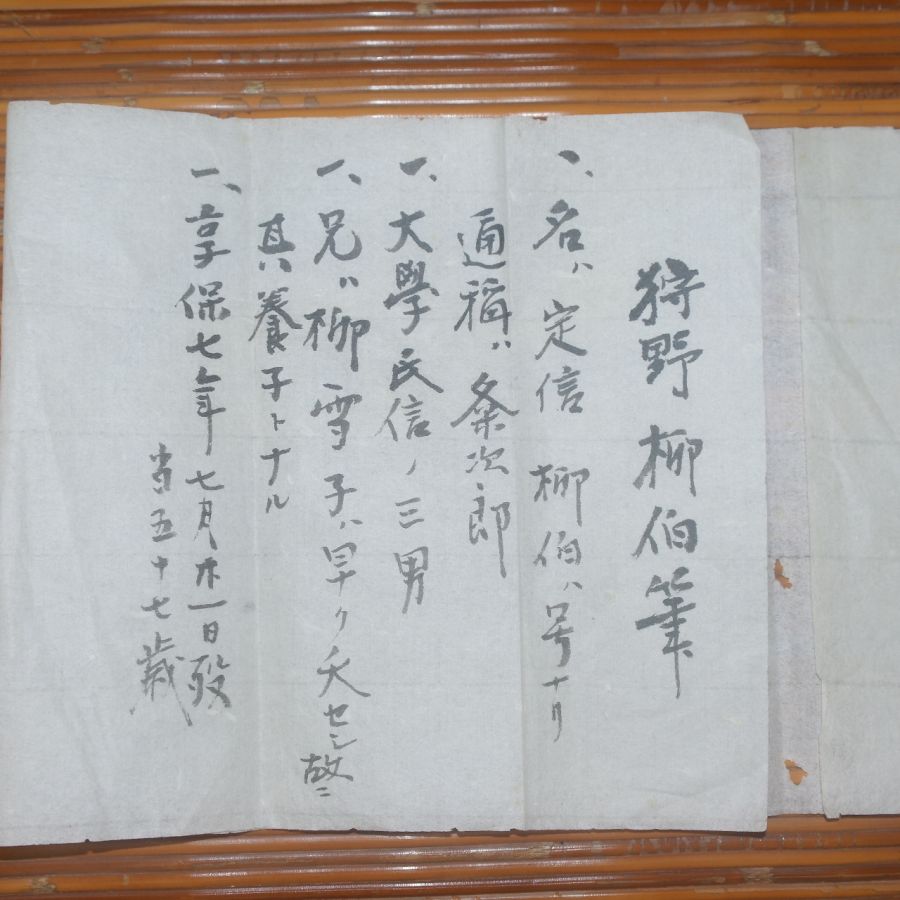 狩野柳伯筆
一、名ハ定信 柳伯ハ号ナリ
通稱ハ粂次郎
一、大學氏信ノ三男
一、兄ハ柳雪子ハ早ク夭セシ故ニ
其ノ養子トナル
一、享保七年七月廿一日歿
当五十七歳